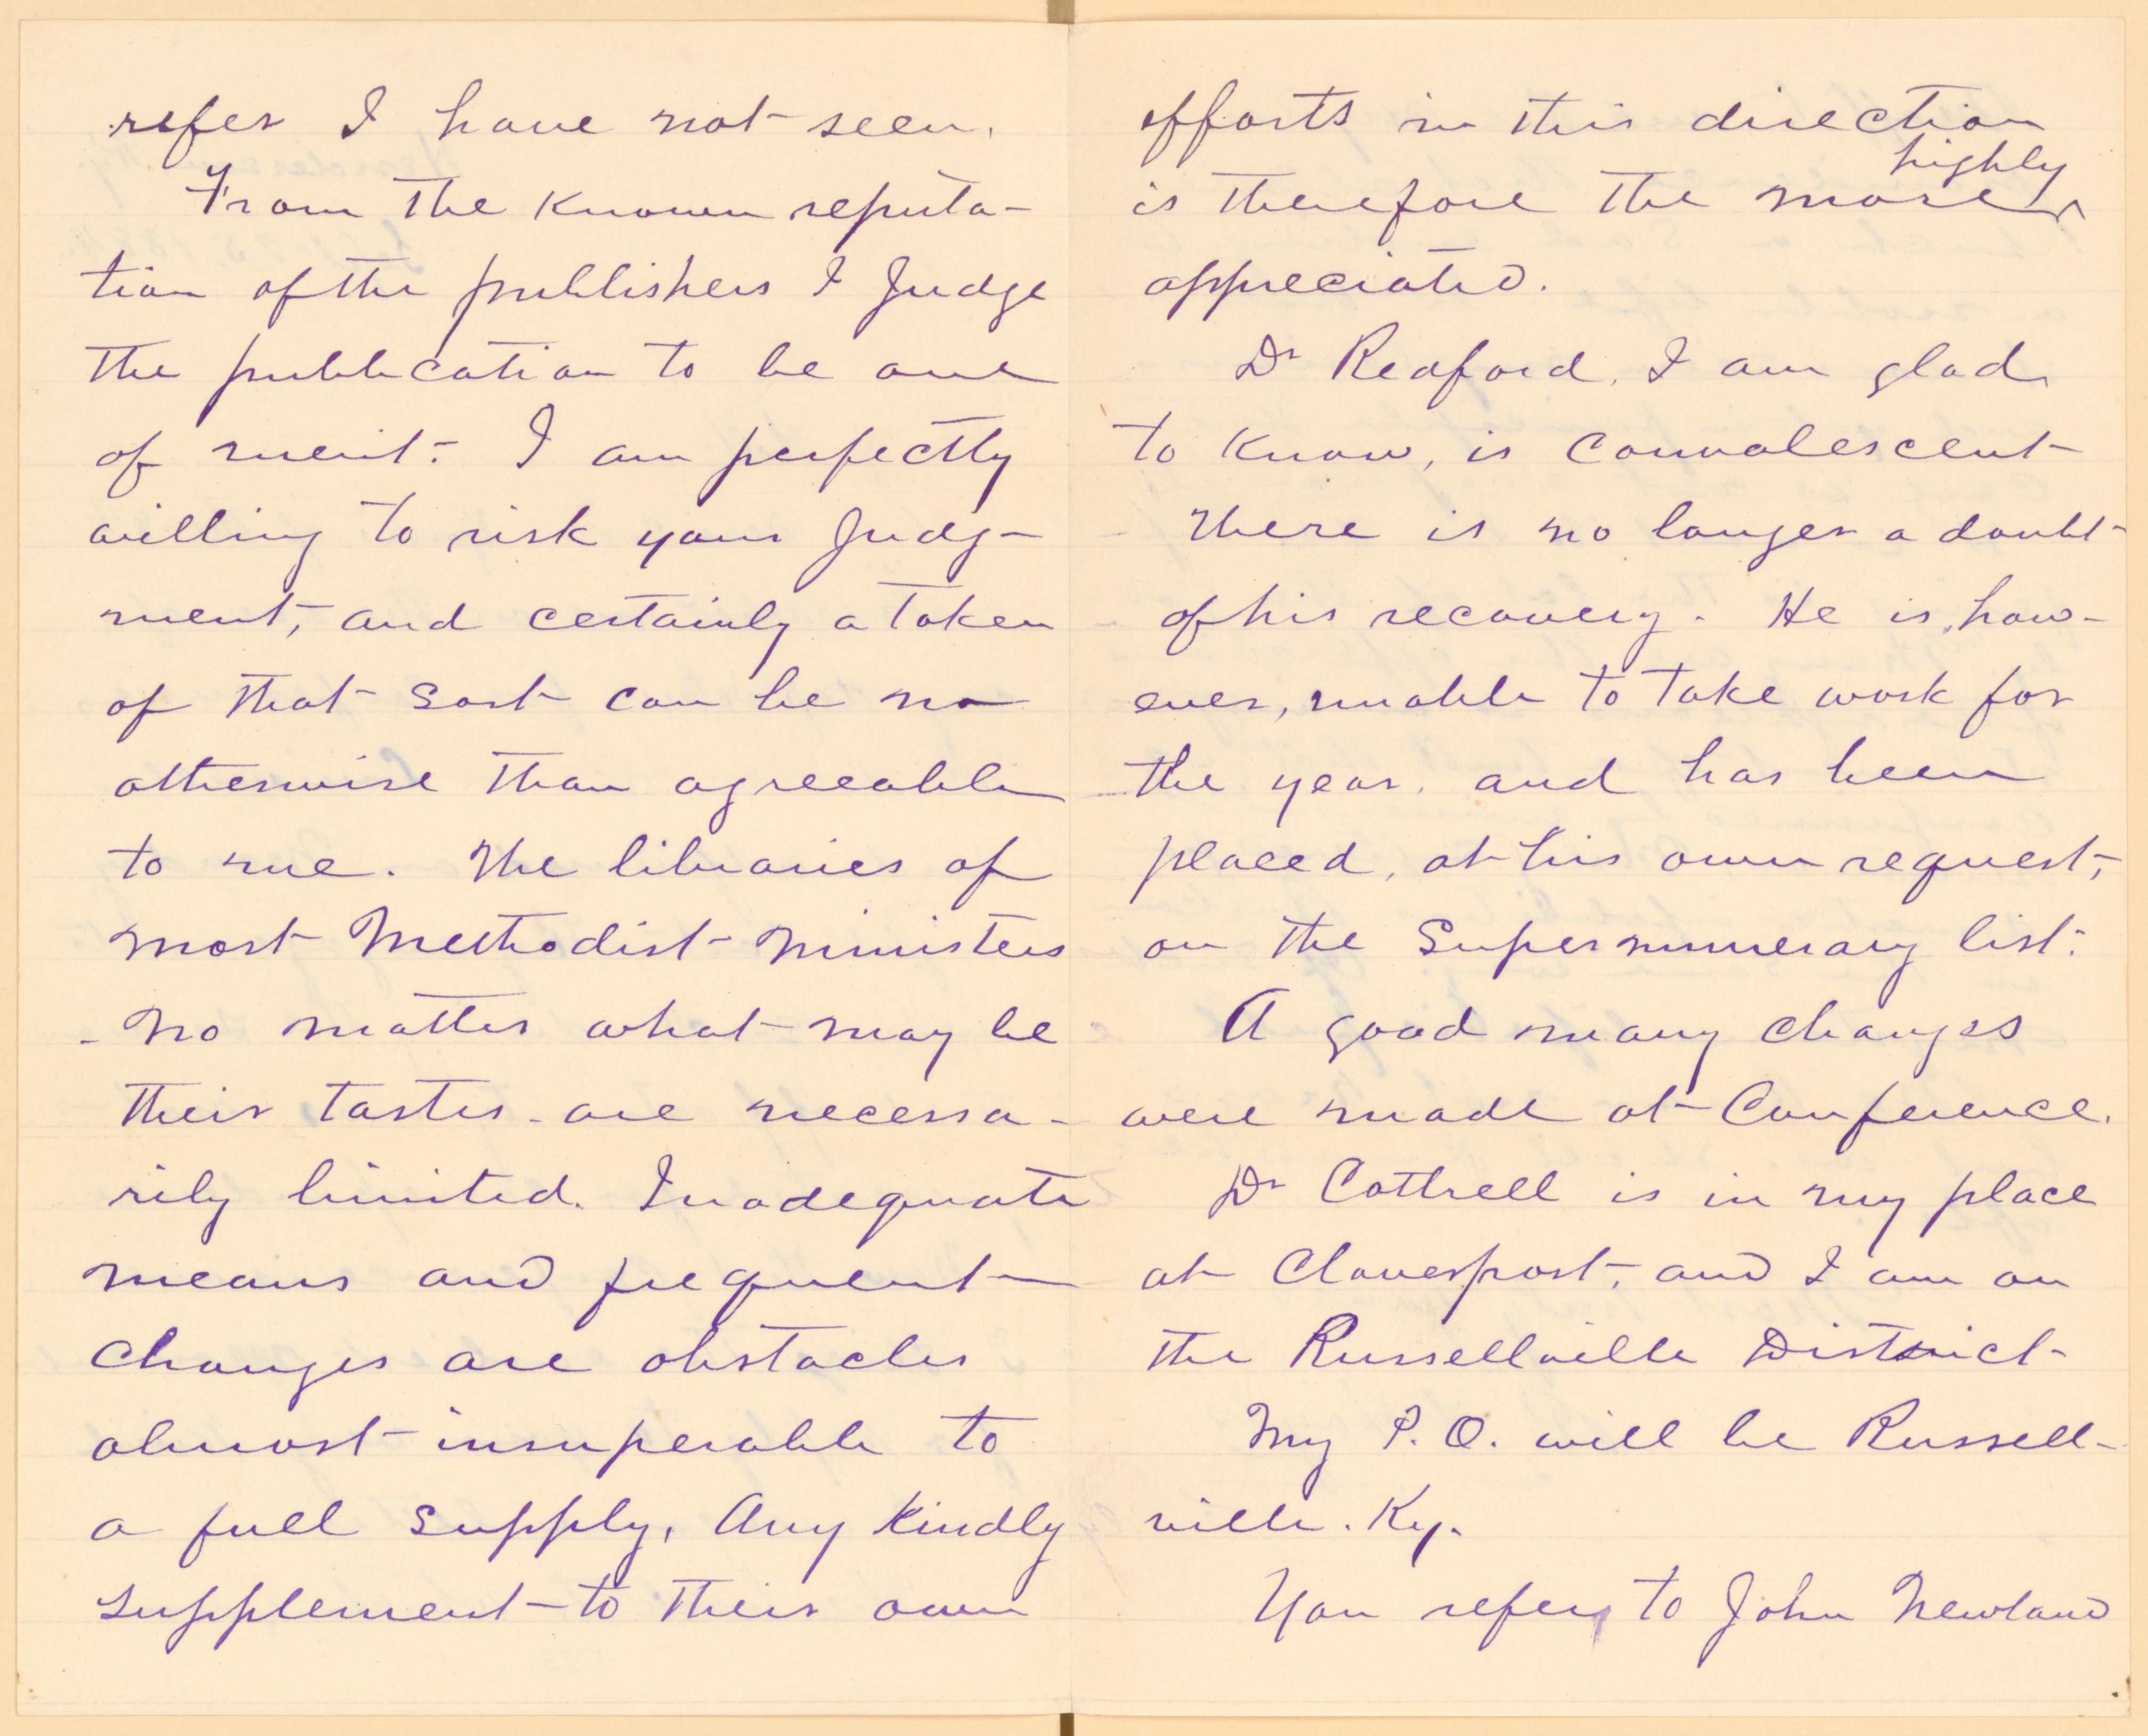 refer I have not seen.
From the known reputa-
tion of the publishers I Judge
the publication to be one
of merit. I am perfectly
willing to risk your Judg-
ment, and certainly a token
of that sort can be no
otherwise than agreeable
to me. The libraries of
most Methodist ministers
- no matter what may be
their tastes - are necessa-
rily limited. Inadequate
means and frequent
changes are obstacles
almost insuperable to
a full supply. Any kindly
supplement to their own
efforts in this direction
highly
is therefore the more ^
appreciated.
Dr Redford, I am glad
to know, is convalescent
There is no longer a doubt
of his recovery. He is, how-
ever, unable to take work for
the year, and has been
placed, at his own request,
on the Supernumerary list.
A good many changes
were made at Conference.
Dr Cottrell is in my place
at Cloverport, and I am on
the Russellville District
My P.O. will be Russell-
ville. Ky.
You refer to John Newland